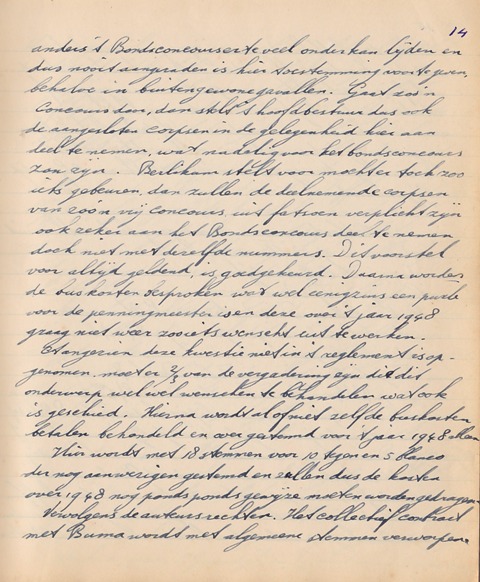 14
anders 't Bondsconcours er te veel onder kan lijden en
dus nooit aangeraden is hier toestemming voor te geven,
behalve in buitengewone gevallen. Gaat zoo'n
Concours door, dan stelt 't hoofdbestuur dus ook
de aangesloten corpsen in de gelegenheid hier aan
deel te nemen, wat nadelig voor het bondsconcours
zou zijn. Berlikum stelt voor mocht er toch zoo
iets gebeuren, dan zullen de deelnemende corpsen
van zoo'n vrij concours, uit fatsoen verplicht zijn
ook zeker aan het Bondsconcours deel te nemen
doch niet met dezelfde nummers. Dit voorstel
voor altijd geldend, is goedgekeurd. Daarna worden
de buskosten besproken wat wel enigzins een
voor de penningmeester is en deze over 't jaar 1948
graag niet weer zooiets wenscht uit te werken.
Aangezien deze kwestie niet in 't reglement is op-
genomen. moet er 2/3 van de vergadering zijn dit dit
onderwerp wel wel wenschen te behandelen wat ook
is geschied. Hierna wordt al of niet zelf de buskosten
betalen behandeld en over gestemd voor 't jaar 1948 alleen
Hier wordt met 18 stemmen voor 10 tegen en 5 blanco
der nog aanwezigen gestemd en zullen dus de kosten
over 1948 nog ponds ponds gewijze moeten worden gedragen.
Vervolgens de auteursrechten. Het collectief contract
met Buma wordt met algemeene stemmen verworpen.